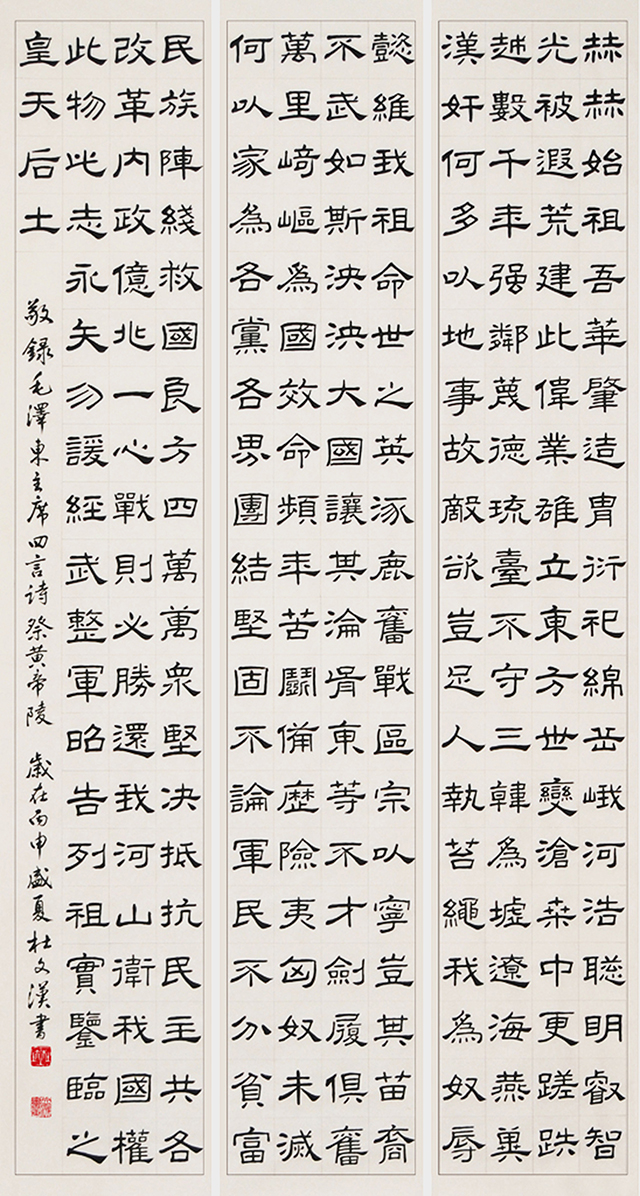 赫赫始祖吾華肇造胄衍祀綿岳峨河浩聰明叡智
光被遐荒建此偉業雄立東方世變滄桑中更蹉跌
越數千年强鄰蔑德琉臺不守三韓為墟遼海燕冀
漢奸何多以地事故敵欲豈足人執笞繩我為奴辱
懿維我祖命世之英涿鹿奮戰區宗以寧豈其苗裔
不武如斯泱泱大國讓其淪胥東等不才劍履俱奮
萬里崎嶇為國效命頻年苦鬭備歷險夷匈奴未滅
何以家為各黨各界團結堅固不論軍民不分貧富
民族陣綫救國良方四萬萬衆堅决抵抗民主共各
改革内政億兆一心戰則必勝還我河山衛我國權
此物此志永矢勿諼經武整軍昭告列祖實鑒臨之
皇天后土
敬錄毛澤東主席四言詩祭黄帝陵 歲在丙申盛夏杜文漢書